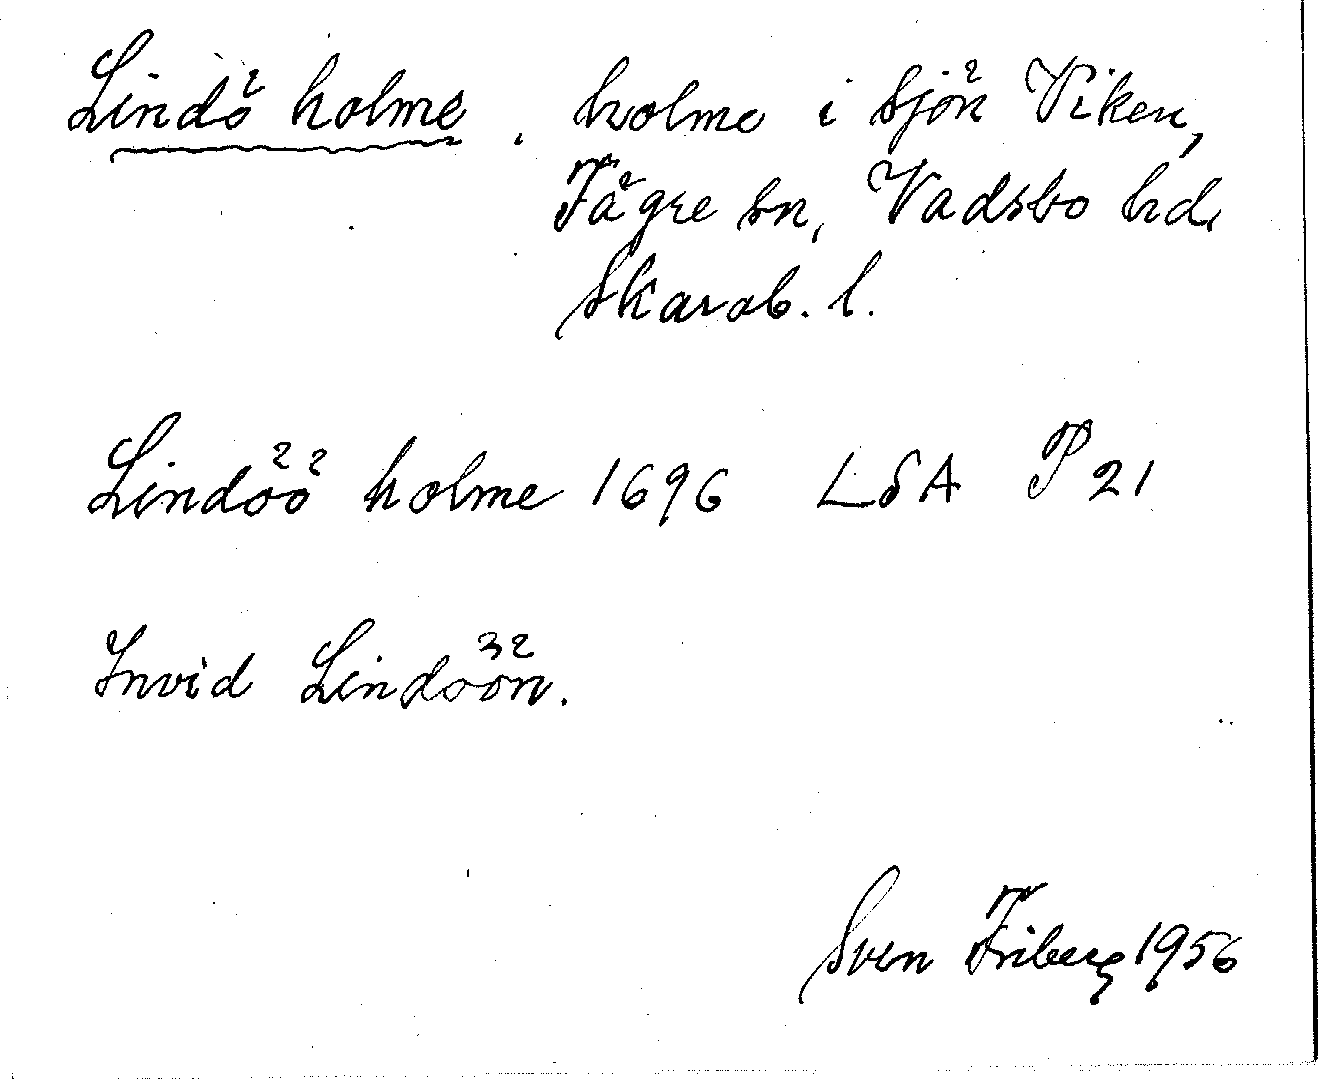 Lindö holme, holme i sjön Viken,
Fågre sn, Vadsbo hd,
Skarab. l.
Lindöö holme 1696 LSA P 21
Invid Lindöön.
Sven Friberg 1956